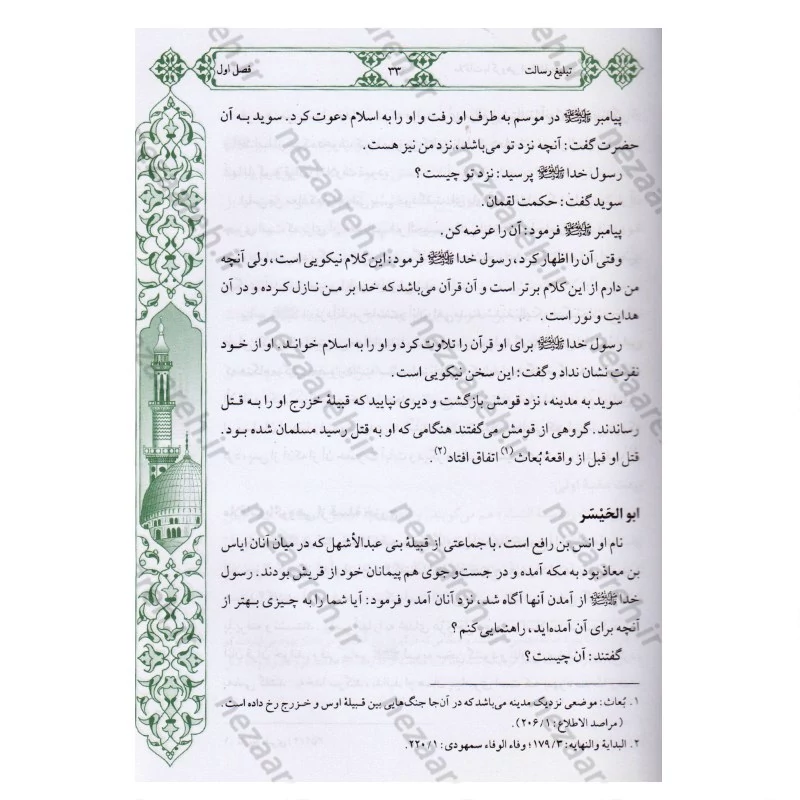 تبلیغ رسالت
۳۳
فصل اول
پیامبر ﷺ در موسم به طرف او رفت و او را به اسلام دعوت کرد. سوید به آن
حضرت گفت: آنچه نزد تو می‌باشد، نزد من نیز هست.
رسول خدا ﷺ پرسید: نزد تو چیست؟
سوید گفت: حکمت لقمان.
پیامبر ﷺ فرمود: آن را عرضه کن.
وقتی آن را اظهار کرد، رسول خدا ﷺ فرمود: این کلام نیکویی است، ولی آنچه
من دارم از این کلام برتر است و آن قرآن می‌باشد که خدا بر من نازل کرده و در آن
هدایت و نور است.
رسول خدا ﷺ برای او قرآن را تلاوت کرد و او را به اسلام خواند. او از خود
نفرت نشان نداد و گفت: این سخن نیکویی است.
سوید به مدینه، نزد قومش بازگشت و دیری نپایید که قبیلهٔ خزرج او را به قتل
رساندند. گروهی از قومش می‌گفتند هنگامی که او به قتل رسید مسلمان شده بود.
قتل او قبل از واقعهٔ بُعاث(۱) اتفاق افتاد(۲).
ابو الحَیْسَر
نام او انس بن رافع است. با جماعتی از قبیلهٔ بنی عبدالأشهل که در میان آنان ایاس
بن معاذ بود به مکه آمده و در جست‌و جوی هم پیمانان خود از قریش بودند. رسول
خدا ﷺ از آمدن آنها آگاه شد، نزد آنان آمد و فرمود: آیا شما را به چیزی بهتر از
آنچه برای آن آمده‌اید، راهنمایی کنم؟
گفتند: آن چیست؟
۱. بُعاث: موضعی نزدیک مدینه می‌باشد که در آن‌جا جنگ‌هایی بین قبیلهٔ اوس و خزرج رخ داده است.
(مراصد الاطلاع: ۲۰۶/۱).
۲. البدایة والنهایه: ۱۷۹/۳؛ وفاء الوفاء سمهودی: ۲۲۰/۱.
nezaareh.ir